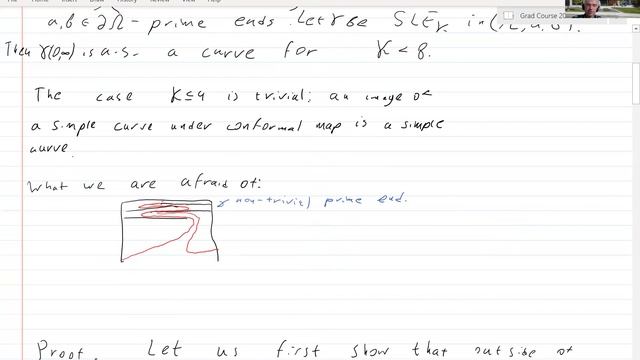 a, b ∈ ∂Ω - prime ends. Let γ be SLE_κ in (Ω, a, b).
Then γ(0,∞) is a.s. a curve for κ < 8.
The case κ≤4 is trivial; an image of
a simple curve under conformal map is a simple
curve.
What we are afraid of:
non-trivial prime end.
Proof. Let us first show that outside of
Grad Course 20